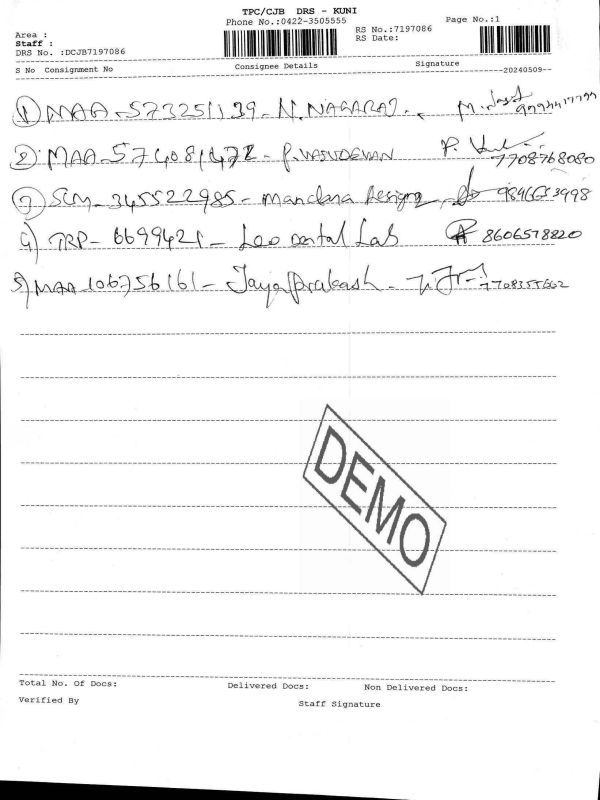 TPC/CJB DRS - KUNI
Phone No.:0422-3505555
Page No.:1
Area :
RS No.:7197086
Staff :
RS Date:
DRS No. :DCJB7197086
S No Consignment No Consignee Details Signature
20240509
1) MAA-573251139- N.NAGARAJ.
2) MAA-574081472- P.VASUDEVAN 7708768080
3) SCM-345522985- Mandara Designz
4) TRP-6699421- Leo Dental Lab 8606578820
5) MAA-106756161- Jayaprakash-
DEMO
Total No. Of Docs: Delivered Docs: Non Delivered Docs:
Verified By Staff Signature